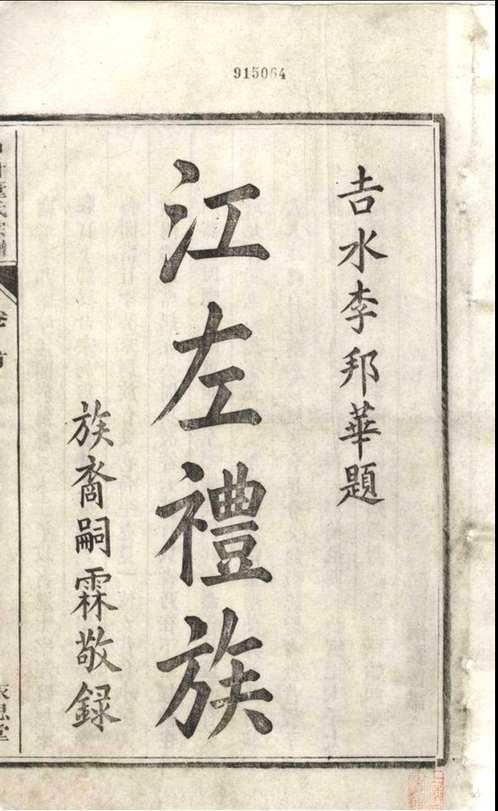 915064
吉水李邦華題
江左禮族
族裔嗣霖敬録
卷首